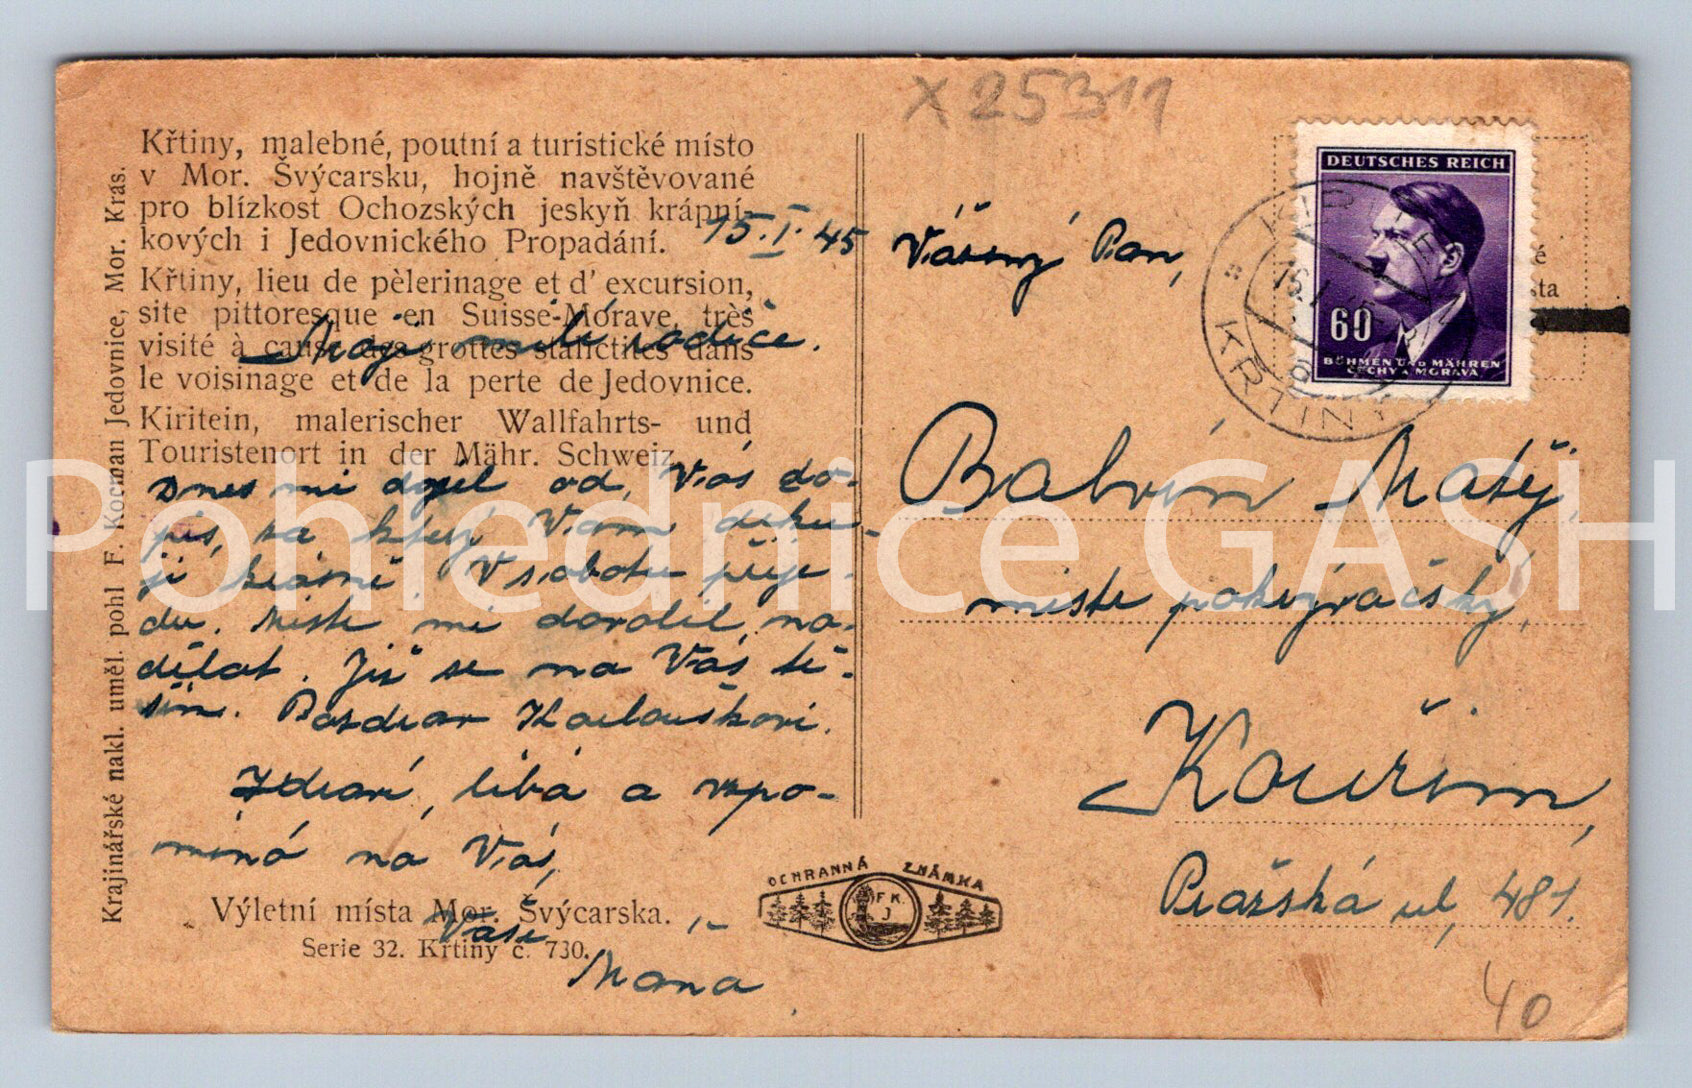 X 25311
Křtiny, malebné, poutní a turistické místo
v Mor. Švýcarsku, hojně navštěvované
pro blízkost Ochozských jeskyň krápní-
kových i Jedovnického Propadání.
Křtiny, lieu de pèlerinage et d' excursion,
site pittoresque en Suisse-Morave, très
visité à cause des grottes stalictites dans
le voisinage et de la perte de Jedovnice.
Kiritein, malerischer Wallfahrts- und
Touristenort in der Mähr. Schweiz
15. I. 45
Moji milí rodiče.
Dnes mi dojel od Vás do-
pis, za který Vám děku-
ji krásně. V sobotu přije-
du. Mistr mi dovolil na-
dělat. Již se na Vás tě-
ším. Pozdrav Karlouškovi.
Zdraví, líbá a vzpo-
míná na Vás,
Vaše
Mána
Výletní místa Mor. Švýcarska.
Serie 32. Křtiny č. 730.
Krajinářské nakl. uměl. pohl F. Kocman Jedovnice, Mor. Kras.
OCHRANNÁ ZNÁMKA
F. K.
J
DEUTSCHES REICH
60
BÖHMEN UND MÄHREN
ČECHY A MORAVA
KŘTINY
Vážený Pan,
Balvín Matěj,
mistr pokrývačský,
Kouřim,
Pražská ul, 481.
40
Pohlednice GASH